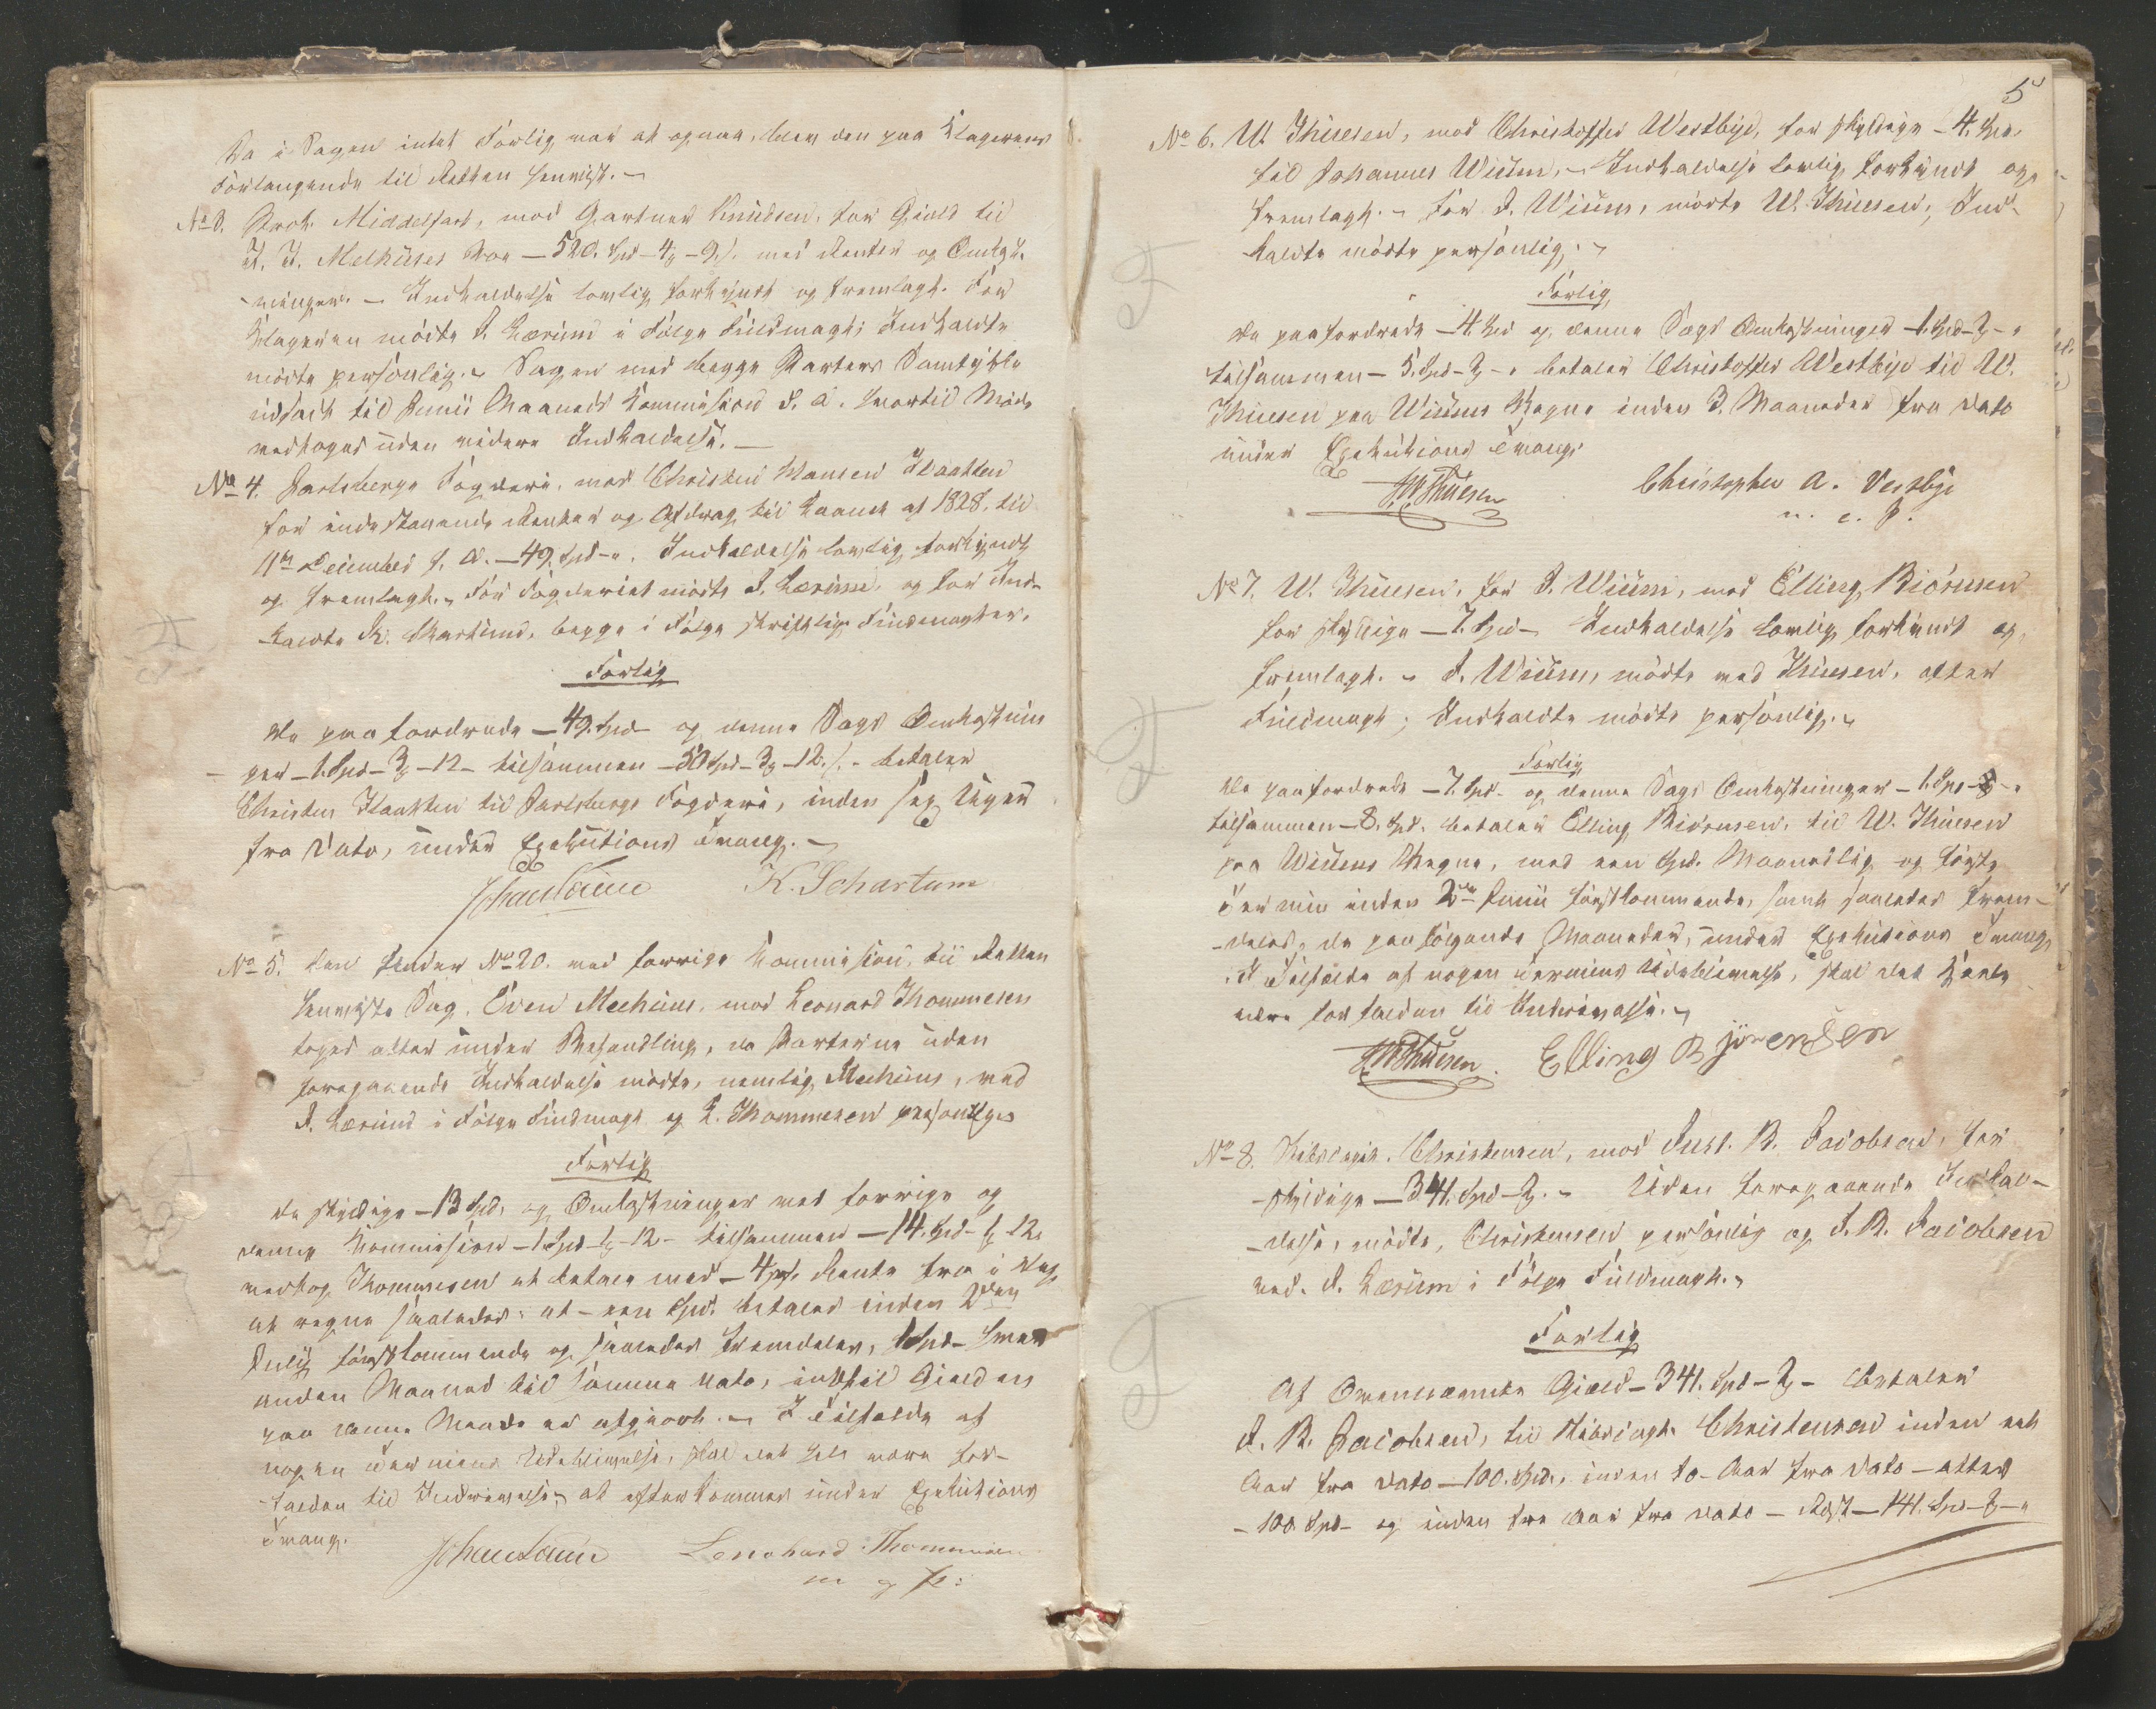 Da i Sagen intet Forlig var at opnaa, blev den paa Klagerens
Forlangende til Retten henviist. –
No 3. Prok. Middelfart, mod Gartner Knudsen, for Gield til
J. J. Melhuses Boe – 520. Spd – 4 – 9 s. med Renter og Omkost-
-ninger. – Indkaldelse lovlig forkyndt og fremlagt. For
Klageren mødte J. Lærum i Følge Fuldmagt; Indkaldte
mødte personlig. – Sagen med begge Parters Samtykke
udsadt til Junii Maaneds Commission d. A. hvortil Møde
vedtoges uden videre Indkaldelse. –
No 4. Jarlsbergs Fogderi, mod Christen Hansen Haakken
for indestaaende Renter og Afdrag til Laanet af 1828, til
11te December f. A. – 49. Spd –. Indkaldelse lovlig forkyndt
og fremlagt. – For Fogderiet mødte J. Lærum, og for Ind-
kaldte K. Schartum, begge i Følge skriftlig Fuldmagter.
Forlig
De paafordrede – 49. Spd – og denne Sags Omkostnin
ger – 1. Spd – 3 – 12 – tilsammen – 50 Spd – 3 – 12 s. – betaler
Christen Haakken til Jarlsbergs Fogderi, inden sex Uger
fra Dato, under Exekutions Tvang. –
K. Schartum
No 5. Den under No 20. ved forrige Commission, til Retten
henviiste Sag, Even Meehuus, mod Leonard Thommesen
toges atter under Behandling, da Parterne uden
foregaaende Indkaldelse mødte, nemlig Meehuus, ved
J. Lærum i Følge Fuldmagt og L. Thommesen personligen
Forlig
De skyldige – 13 Spd, og Omkostninger ved forrige og
denne Kommission – 1. Spd – – 12 – tilsammen – 14. Spd – – 12.
vedtog Thommesen at betale med – 4 pCt. Rente fra i Dag
at regne saaledes: at – een Spd. betales inden 2den
Julij førstkommende og saaledes fremdeles, 1 Spd – hver
anden Maaned til samme Dato, indtil Gielden
paa denne Maade er afgiort. – I Tilfælde af
nogen Termins Udeblivelse, skal det hele være for-
-falden til Inddrivelse, at efterkommes under Exekutions
Tvang.
Lenohard Thommesen
m. g. P.
5
No 6. W. Thuesen, mod Christoffer Westbye, for skyldige – 4. Spd.
til Johannes Wiums, – Indkaldelse lovlig forkyndt og
fremlagt. – For J. Wiums, mødte W. Thuesen; Ind-
kaldte mødte personlig. –
Forlig
De paafordrede – 4. Spd og denne Sags Omkostninger – 1. Spd – –
tilsammen – 5. Spd – – betaler Christoffer Westbye til W.
Thuesen paa Wiums Vegne inden 3. Maaneder fra Dato
under Exekutions Tvang.
W Thuesen Christopher A. Vestbye
m. e. P.
No 7. W. Thuesen, for J. Wiums, mod Elling Biørnsen
for skyldige – 7. Spd – Indkaldelse lovlig forkyndt og
fremlagt. – J. Wiums, mødte ved Thuesen, efter
Fuldmagt; Indkaldte mødte personlig. –
Forlig
De paafordrede – 7. Spd. og denne Sags Omkostninger – 1. Spd – –
tilsammen – 8. Spd. betaler Elling Biørnsen, til W. Thuesen
paa Wiums Vegne, med een Spd. Maanedlig og første
Termin inden 2den Junii førstkommende, samt saaledes frem-
-deles, de paafølgende Maaneder, under Exekutions Tvang,
I Tilfælde af nogen Termins Udeblivelse, skal det Hele
være forfalden til Inddrivelse. –
W Thuesen. Elling Bjørensen
No 8. Christensen, mod Just. R. Jacobsen, for
skyldige – 341. Spd – . – Uden foregaaende Indkal-
-delse, mødte, Christensen personlig og J. R. Jacobsen
ved J. Lærum i Følge Fuldmagt. –
Forlig
Af Ovennævnte Gield – 341. Spd – – betaler
J. R. Jacobsen, til Christensen inden eet
Aar fra Dato – 100. Spd, inden to Aar fra Dato – atter
– 100 Spd – og inden tre Aar fra Dato – Rest – 141. Spd – –